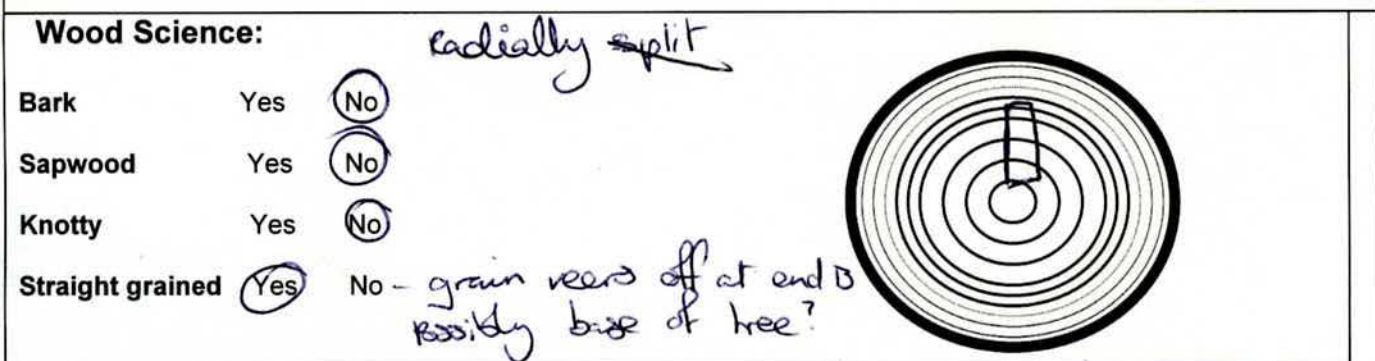 Wood Science:
radially split
Bark Yes No
Sapwood Yes No
Knotty Yes No
Straight grained Yes No - grain veers off at end B
possibly base of tree?